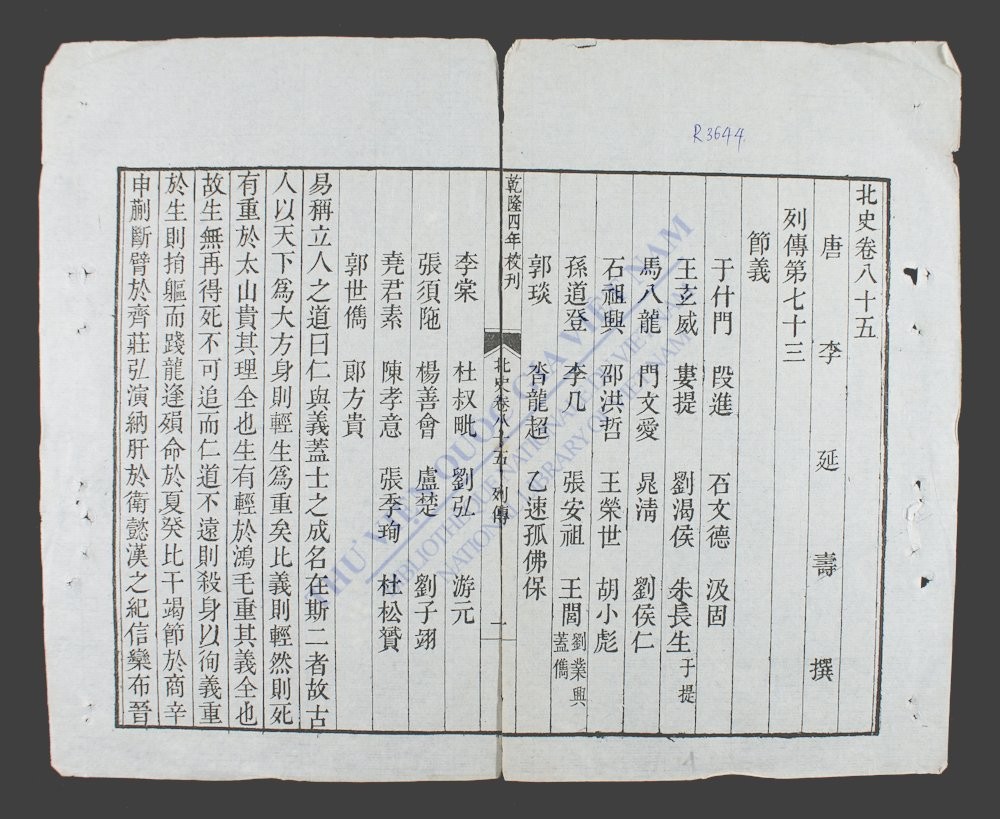 R.3644
北史卷八十五
唐 李 延 壽 撰
列傳第七十三
節義
于什門 段進 石文德 汲固
王玄威 婁提 劉渴侯 朱長生 于提
馬八龍 門文愛 晁清 劉侯仁
石祖興 邵洪哲 王榮世 胡小彪
孫道登 李几 張安祖 王閭 劉業興 蓋儁
郭琰 沓龍超 乙速孤佛保
乾隆四年校刊
北史卷八十五 列傳 一
李棠 杜叔毗 劉弘 游元
張須陁 楊善會 盧楚 劉子翊
堯君素 陳孝意 張季珣 杜松贇
郭世儁 郎方貴
易稱立人之道曰仁與義蓋士之成名在斯二者故古
人以天下爲大方身則輕生爲重矣比義則輕然則死
有重於太山貴其理全也生有輕於鴻毛重其義全也
故生無再得死不可追而仁道不遠則殺身以徇義重
於生則捐軀而踐龍逢殞命於夏癸比干竭節於商辛
申蒯斷臂於齊莊弘演納肝於衛懿漢之紀信欒布晉
THƯ VIỆN QUỐC GIA VIỆT NAM
BIBLIOTHEQUE NATIONALE DU VIETNAM
NATIONAL LIBRARY OF VIETNAM